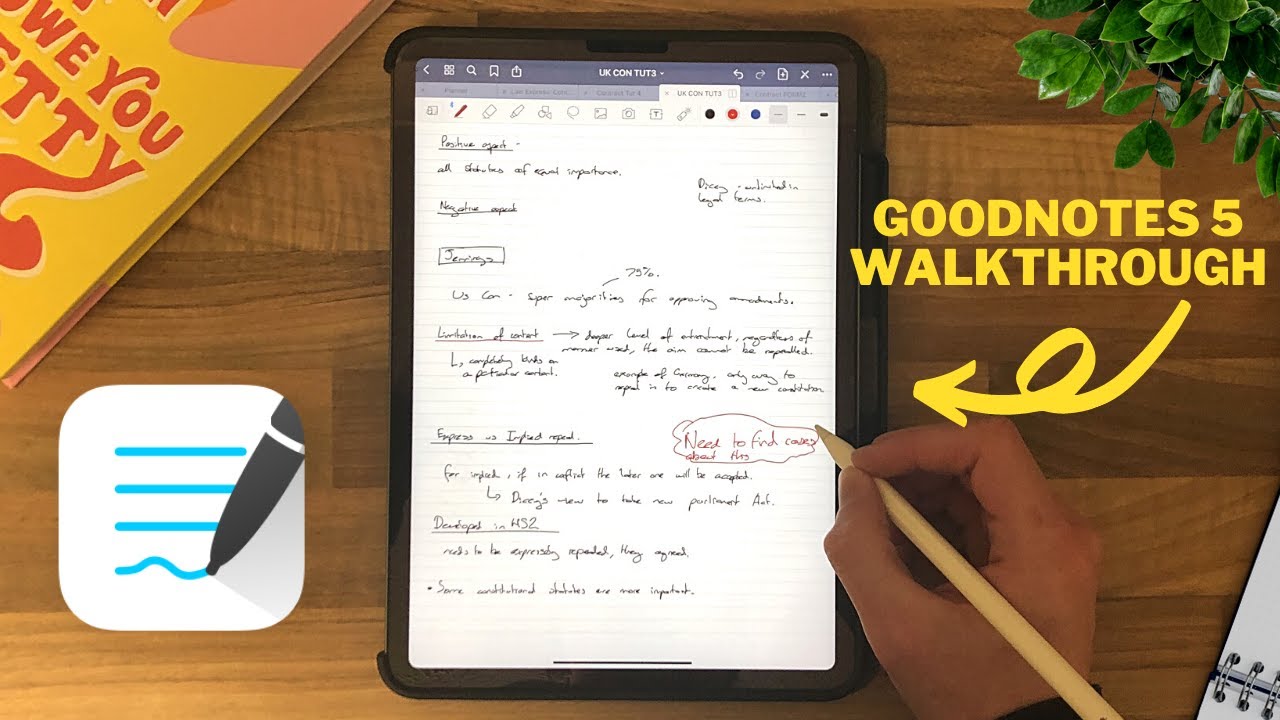 OWE YOU
UK CON TUT3
Planner
Contract Tut 4
UK CON TUT3
Positive aspect -
all statutes of equal importance.
Dicey - unlimited in
legal terms.
Negative aspect
Jennings
75%.
Us Con - super majorities for approving amendments.
Limitation of content → deeper level of entrenchment, regardless of
manner used, the aim cannot be repealled.
completely binds on
a particular content.
example of Germany, only way to
repeal is to create a new constitution
Express vs Implied repeal.
Need to find cases
about this
for implied, if in conflict the later one will be accepted.
Dicey's view to take new parliament Act.
Developed in HS2
needs to be expressly repealed, they agreed.
• Some constitutional statutes are more important.
GOODNOTES 5
WALKTHROUGH